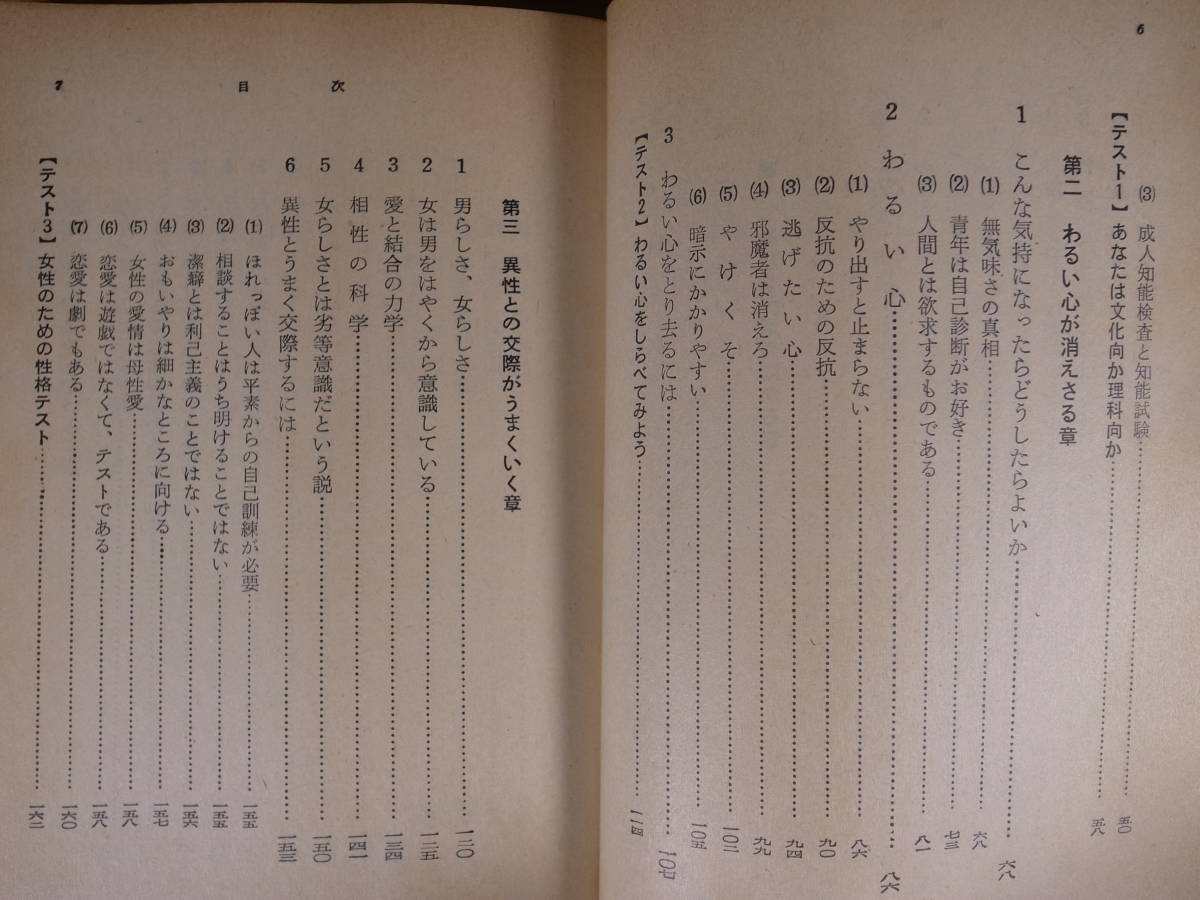 6
⑶ 成人知能検査と知能試験……五〇
【テスト1】あなたは文化向か理科向か……五八
第二 わるい心が消えさる章
1 こんな気持になったらどうしたらよいか……六八
⑴ 無気味さの真相……六八
⑵ 青年は自己診断がお好き……七三
⑶ 人間とは欲求するものである……八一
2 わるい心……八六
⑴ やり出すと止まらない……八六
⑵ 反抗のための反抗……九〇
⑶ 逃げたい心……九四
⑷ 邪魔者は消えろ……九九
⑸ やけくそ……一〇二
⑹ 暗示にかかりやすい……一〇五
3 わるい心をとり去るには……一〇七
【テスト2】わるい心をしらべてみよう……一一四
目次
7
第三 異性との交際がうまくいく章
1 男らしさ、女らしさ……一二〇
2 女は男をはやくから意識している……一二五
3 愛と結合の力学……一三四
4 相性の科学……一四一
5 女らしさとは劣等意識だという説……一五〇
6 異性とうまく交際するには……一五三
⑴ ほれっぽい人は平素からの自己訓練が必要……一五五
⑵ 相談することはうち明けることではない……一五五
⑶ 潔癖とは利己主義のことではない……一五六
⑷ おもいやりは細かなところに向ける……一五七
⑸ 女性の愛情は母性愛……一五八
⑹ 恋愛は遊戯ではなくて、テストである……一五八
⑺ 恋愛は劇でもある……一六〇
【テスト3】女性のための性格テスト……一六二